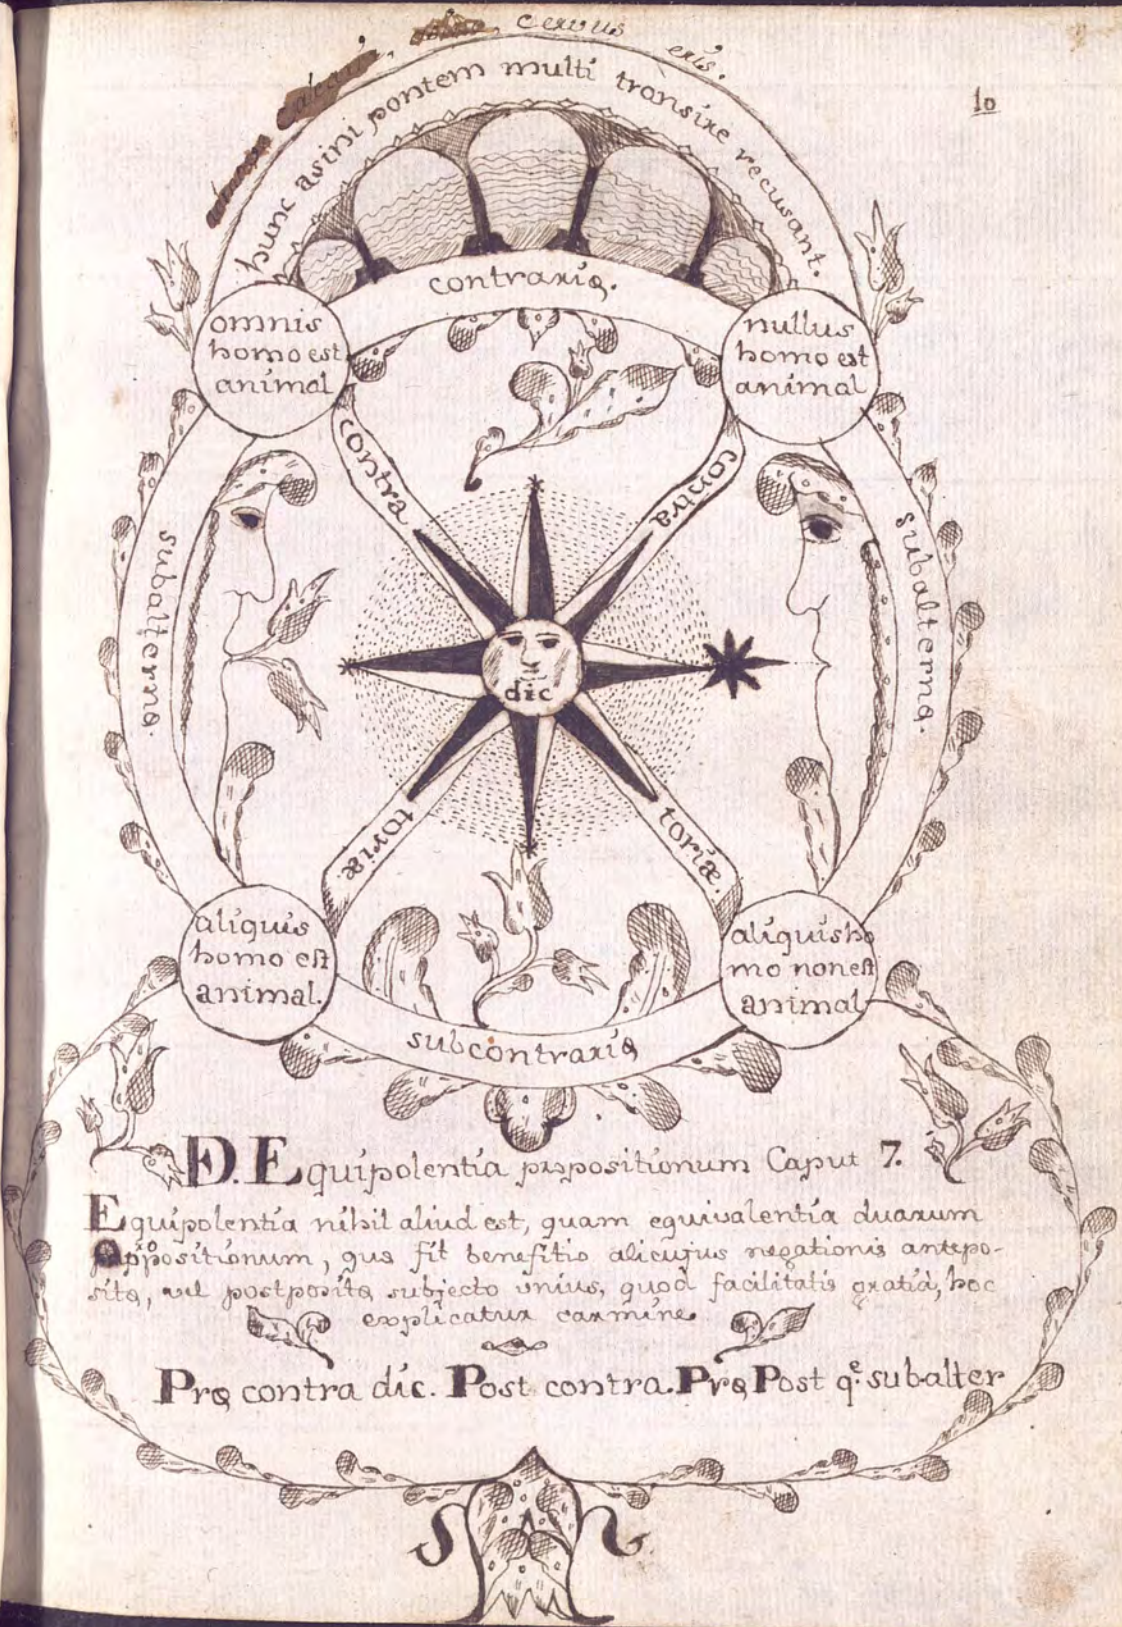 cervus eris.
10
hunc asini pontem multi transire recusant.
contrarię.
omnis
homo est
animal
nullus
homo est
animal
contra
contra
subalternę.
subalternę.
dic
toriæ.
toriæ.
aliquis
homo est
animal.
aliquis ho
mo non est
animal
subcontrarię
D. Equipolentia propositionum Caput 7.
Equipolentia nihil aliud est, quam equivalentia duarum
oppositionum, quę fit benefitio alicujus negationis antepo-
sitę, vel postpositę subjecto unius, quod facilitatis gratiâ, hoc
explicatur carmine
Prę contra dic. Post contra. Prę Post q.e subalter